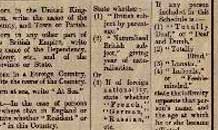 orn in the United King-
m, write the name of the
unty, and Town or Parish.
orn in any other part of
e British Empire, write
e name of the Dependency,
olony, etc., and of the
ovince or State.
orn in a Foreign Country,
ite the name of the Country.
orn at sea, write "At Sea."
—In the case of persons
where than in England or
tate whether "Resident" or
in this Country.
State whether:—
(1) "British sub-
ject by parent-
age."
(2) "Naturalised
British sub-
ject," giving
year of natu-
ralisation.
Or
(3) If of foreign
nationality,
state whether
"French,"
"German,"
If any person
included in this
Schedule is:—
(1) "Totally
Deaf," or
"Deaf and
Dumb,"
(2) "Totally
Blind,"
(3) "Lunatic,"
(4) "Imbecile,"
or "Feeble-
minded,"
state the infirmity
opposite that per-
son's name, and
the age at which
he or she became